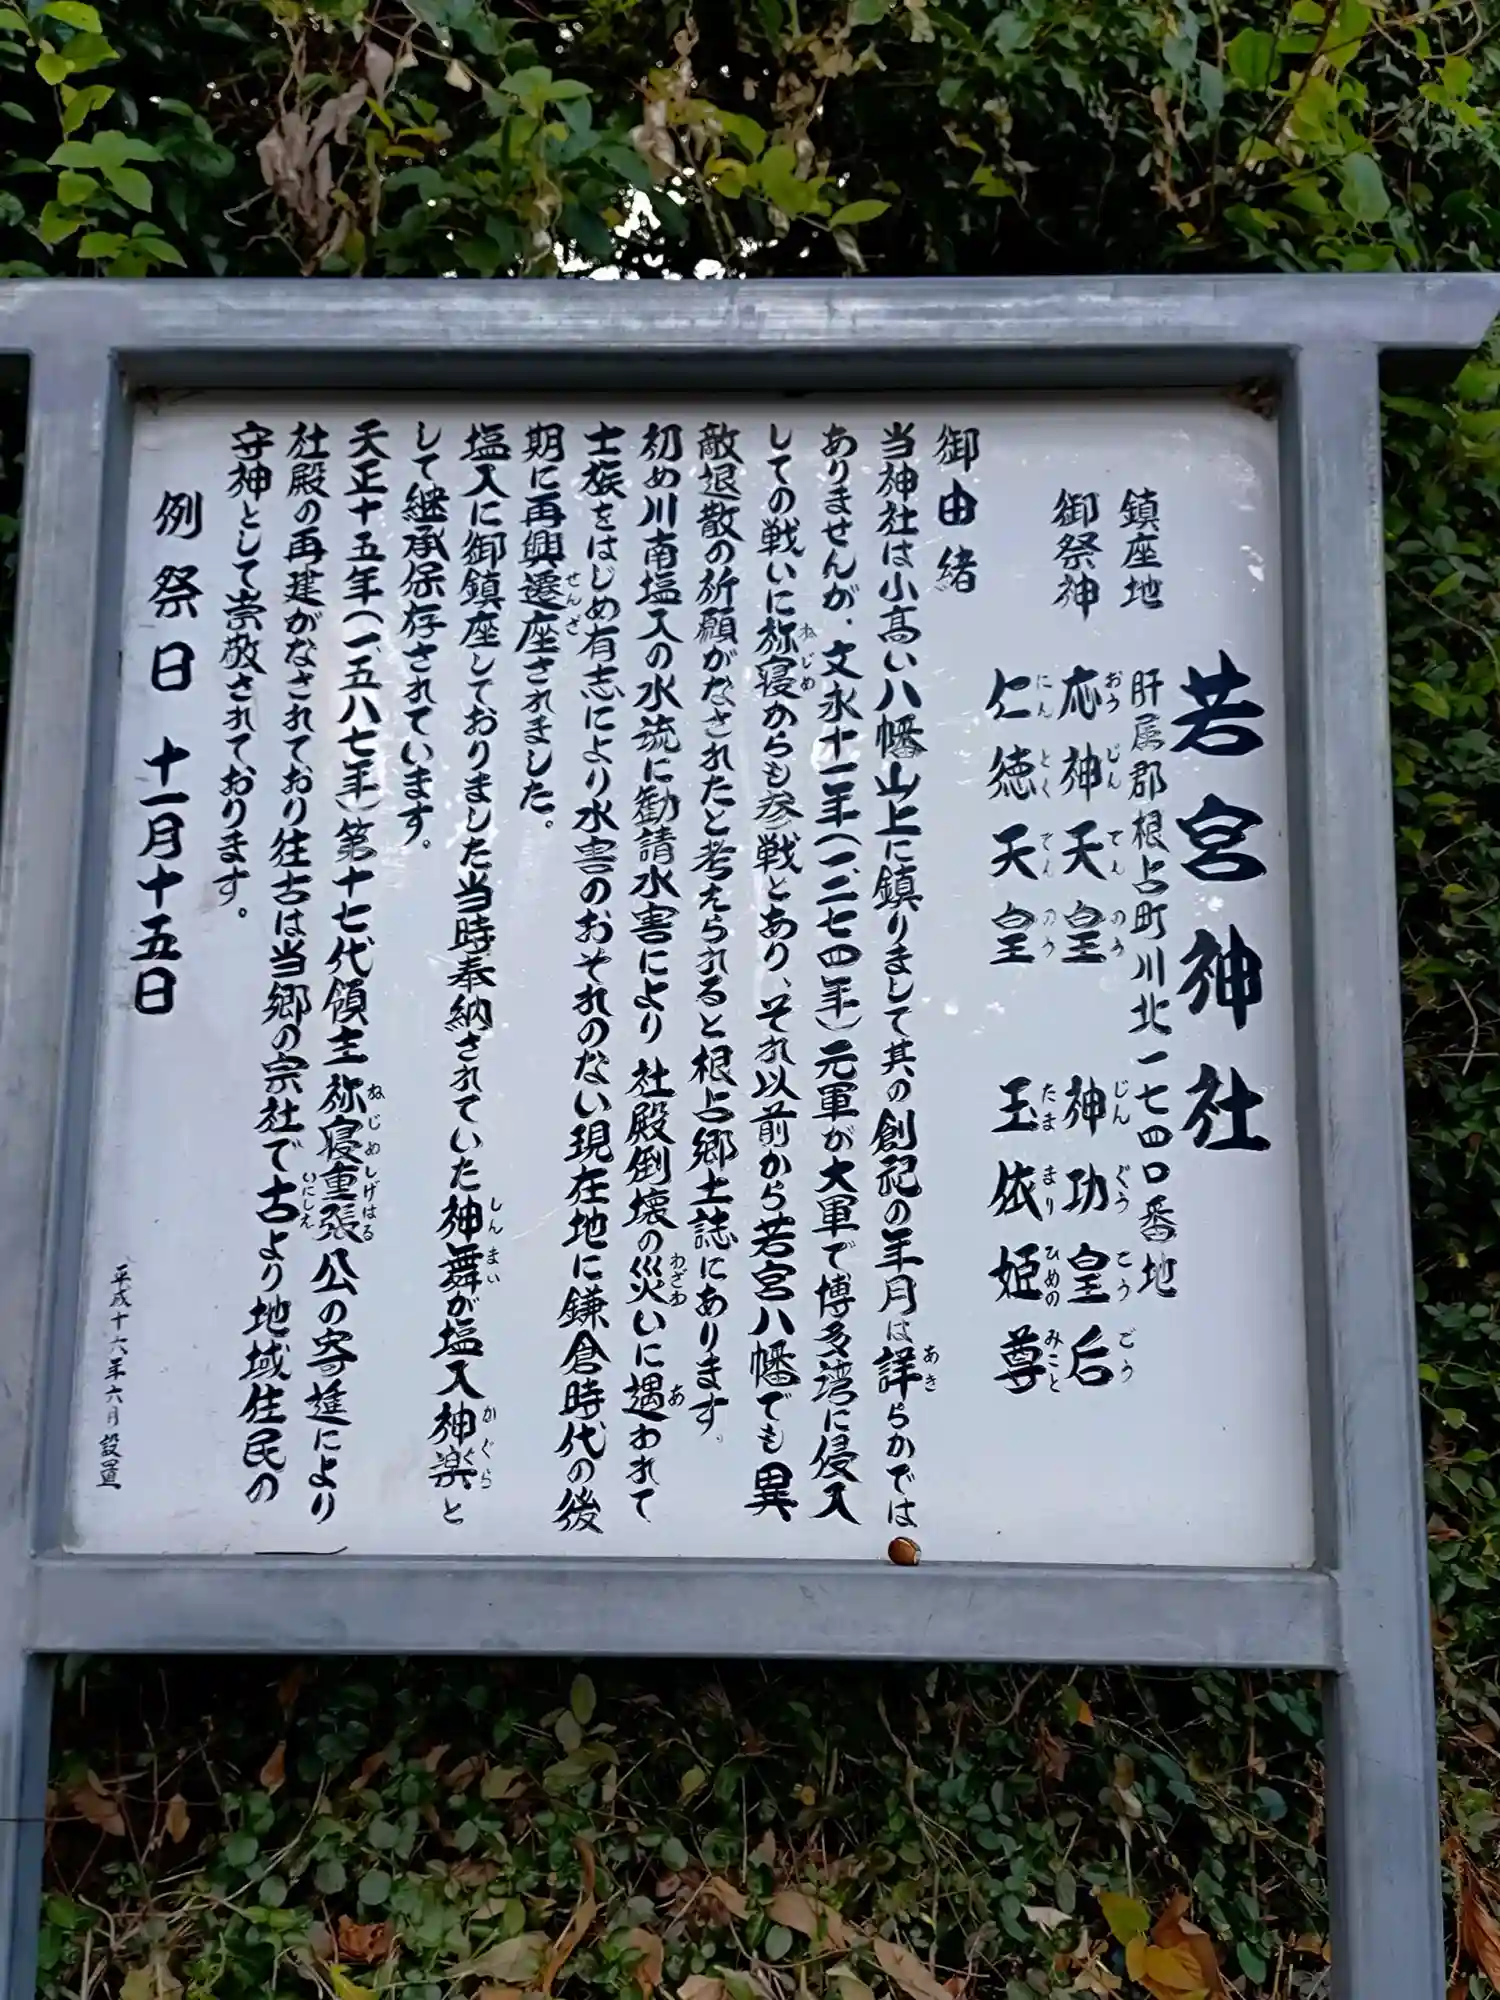 若宮神社
鎮座地　肝属郡根占町川北一七四〇番地
御祭神　応神天皇　神功皇后
仁徳天皇　玉依姫尊
御由緒
当神社は小高い八幡山上に鎮りまして其の創記の年月は詳らかでは
ありませんが、文永十一年(一二七四年)元軍が大軍で博多湾に侵入
しての戦いに祢寝からも参戦とあり、それ以前から若宮八幡でも異
敵退散の祈願がなされたと考えられると根占郷土誌にあります。
初め川南塩入の水流に勧請水害により社殿倒壊の災いに遇われて
士族をはじめ有志により水害のおそれのない現在地に鎌倉時代の後
期に再興遷座されました。
塩入に御鎮座しておりました当時奉納されていた神舞が塩入神楽と
して継承保存されています。
天正十五年(一五八七年)第十七代領主祢寝重張公の寄進により
社殿の再建がなされており往古は当郷の宗社で古より地域住民の
守神として崇敬されております。
例祭日　十一月十五日
平成十六年六月設置